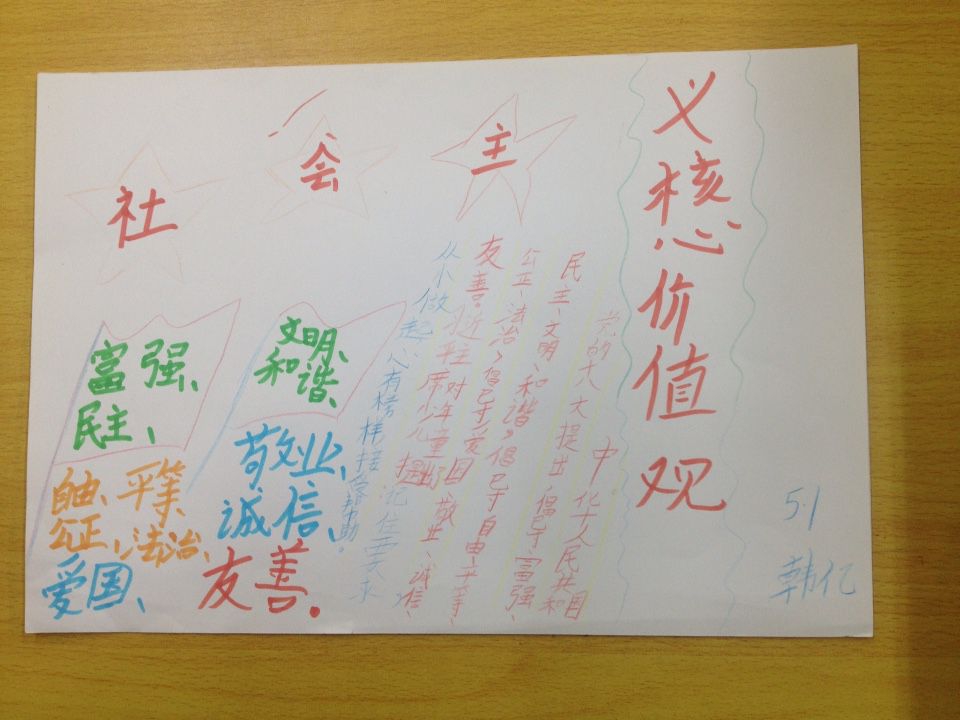 社会主
义核心价值观
富强、
民主、
文明、
和谐、
自由、平等
公正、法治、
爱国、
敬业、
诚信、
友善。
党的十八大提出
中 化 人民共和国
民主、文明、和谐,倡导自由、平等、
公正、法治,倡导爱国、敬业、诚信、
友善。习近平主席对少年儿童提出
从小做起心有榜样接 帮助。
记住要求
5.1
韩亿